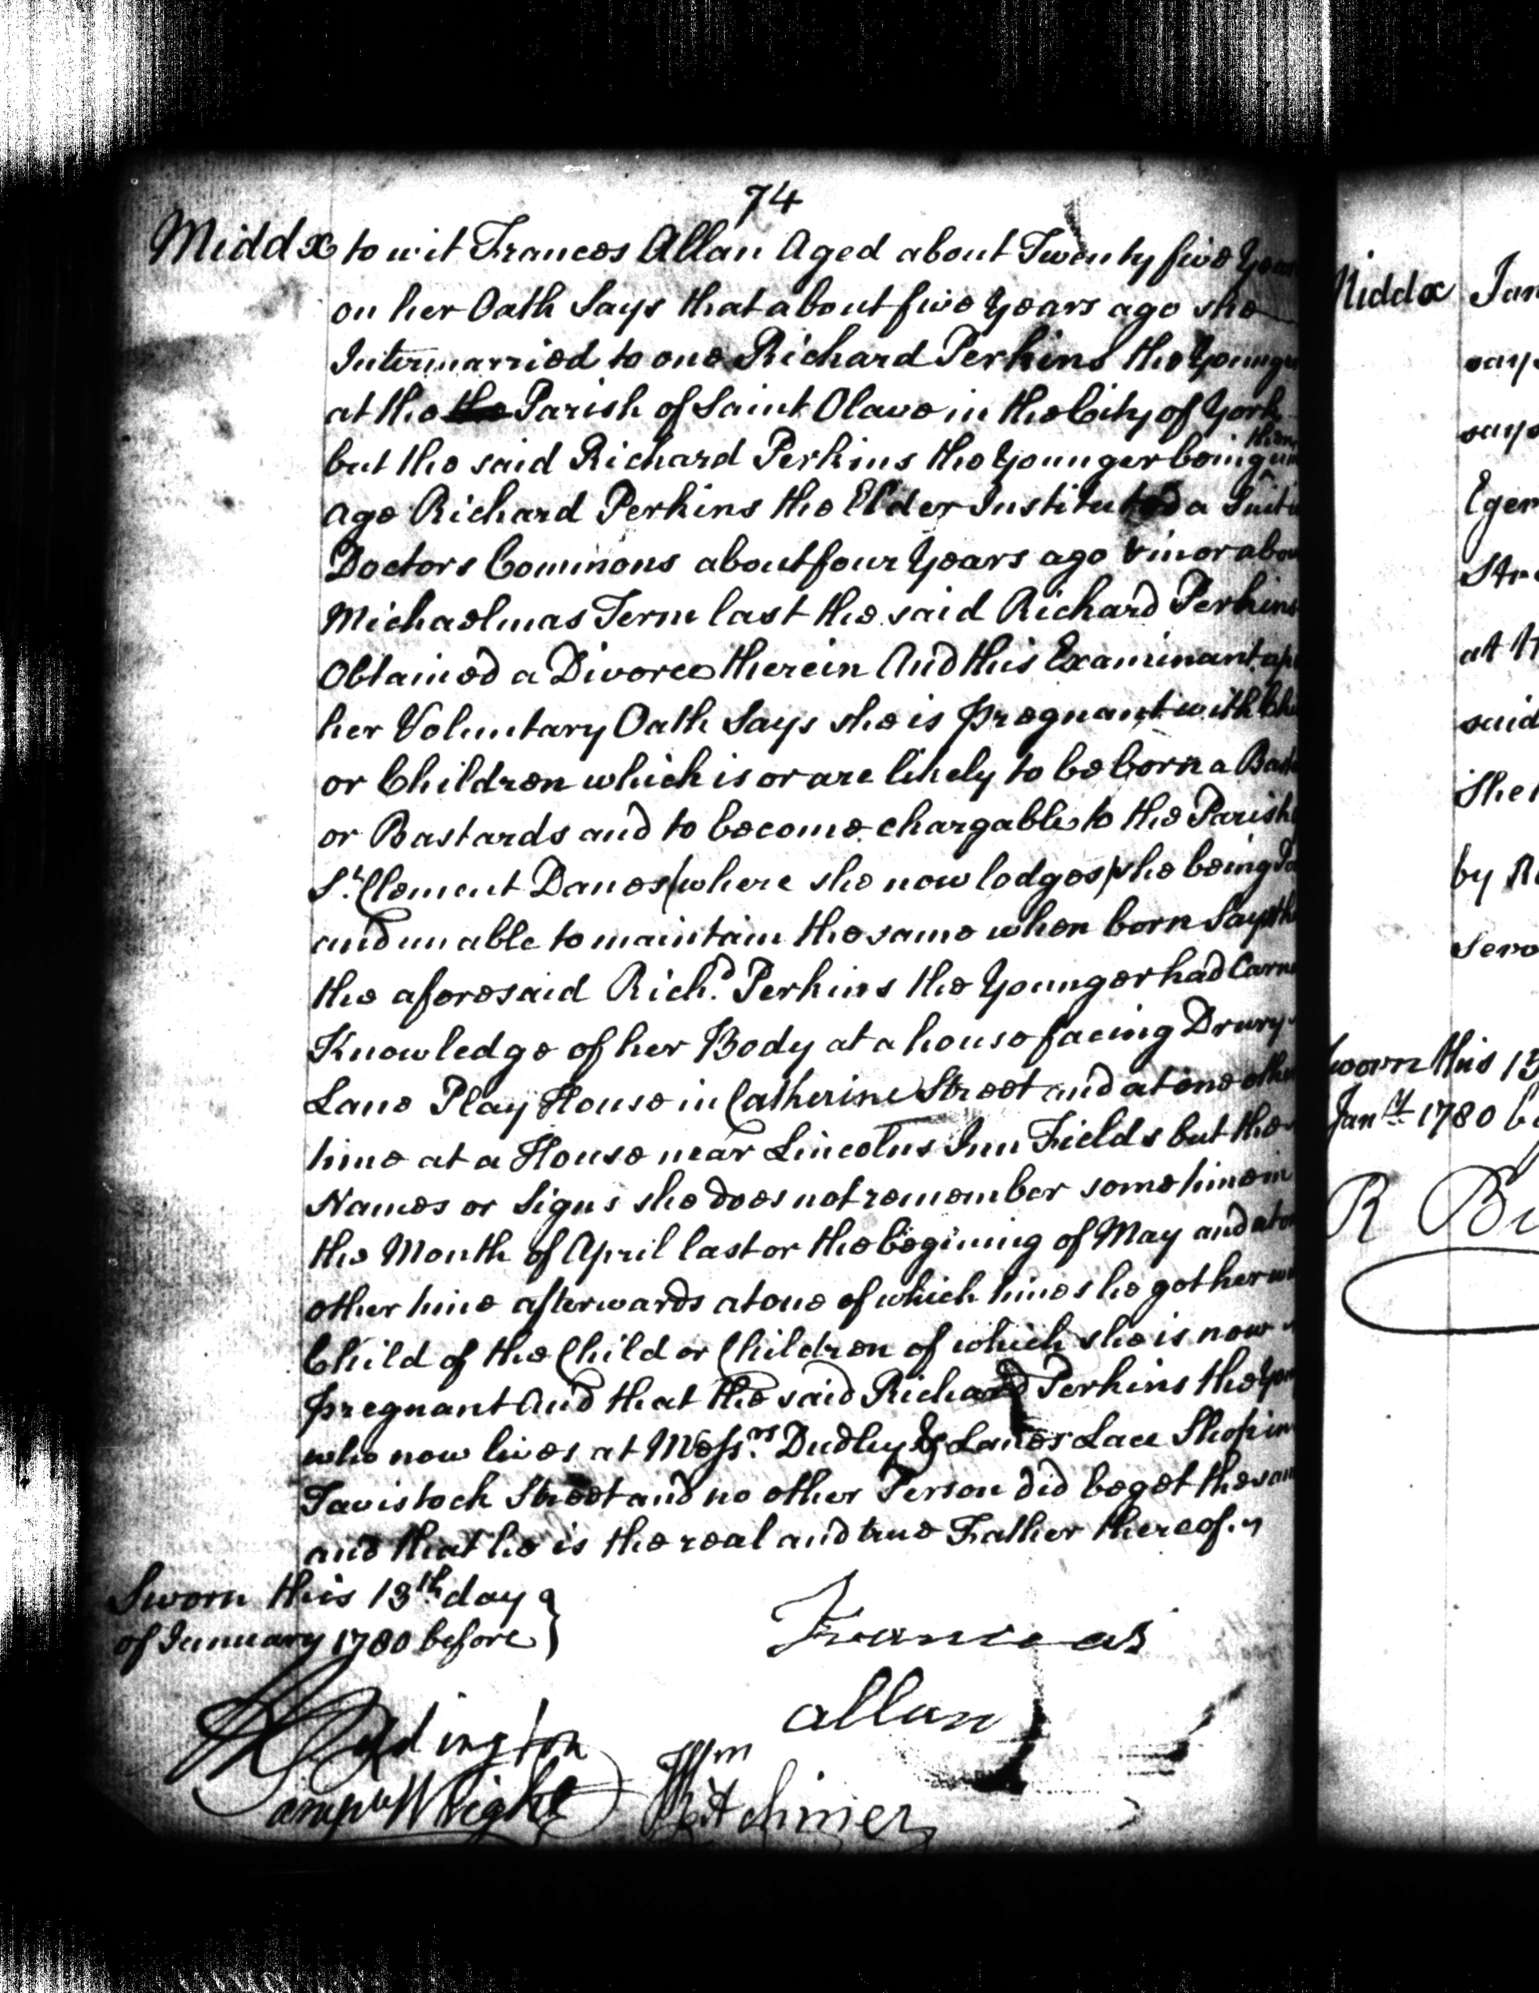 74
Middx to wit Frances Allan Aged about Twenty five Years
on her Oath Says that about five Years ago she
Intermarried to one Richard Perkins the Younger
at the the Parish of Saint Olave in the City of York
but the said Richard Perkins the Younger being then
age Richard Perkins the Elder Instituted a Suit
Doctors Commons about four Years ago & in or about
Michaelmas Term last the said Richard Perkins
Obtained a Divorce therein And this Examinant
her Voluntary Oath Says she is pregnant with Chi
or Children which is or are likely to be born a Bast
or Bastards and to become chargable to the Parish
St. Clement Danes (where she now lodges) she being Po
and unable to maintain the same when born Says th
the aforesaid Richd. Perkins the Younger had Carn
Knowledge of her Body at a house facing Drury
Lane Play House in Catherine Street and at one other
time at a House near Lincolns Inn Fields but the
Names or Signs she does not remember some time in
the Month of April last or the begining of May and at on
other time afterwards at one of which times he got her
Child of the Child or Children of which she is now
pregnant And that the said Richard Perkins the You
who now lives at Messrs. Dudley & Lanes Lace Shop in
Tavistock Street and no other Person did beget the sam
and that he is the real and true Father thereof
Sworn this 13th day
of January 1780 before
Frances
allan
Addington
Sampn Wright
Wm
Kitchiner
Middx Jan
says
says
Eger
Str
at
said
She
by R
Serv
Sworn this 13
Jany 1780 be
R Bu